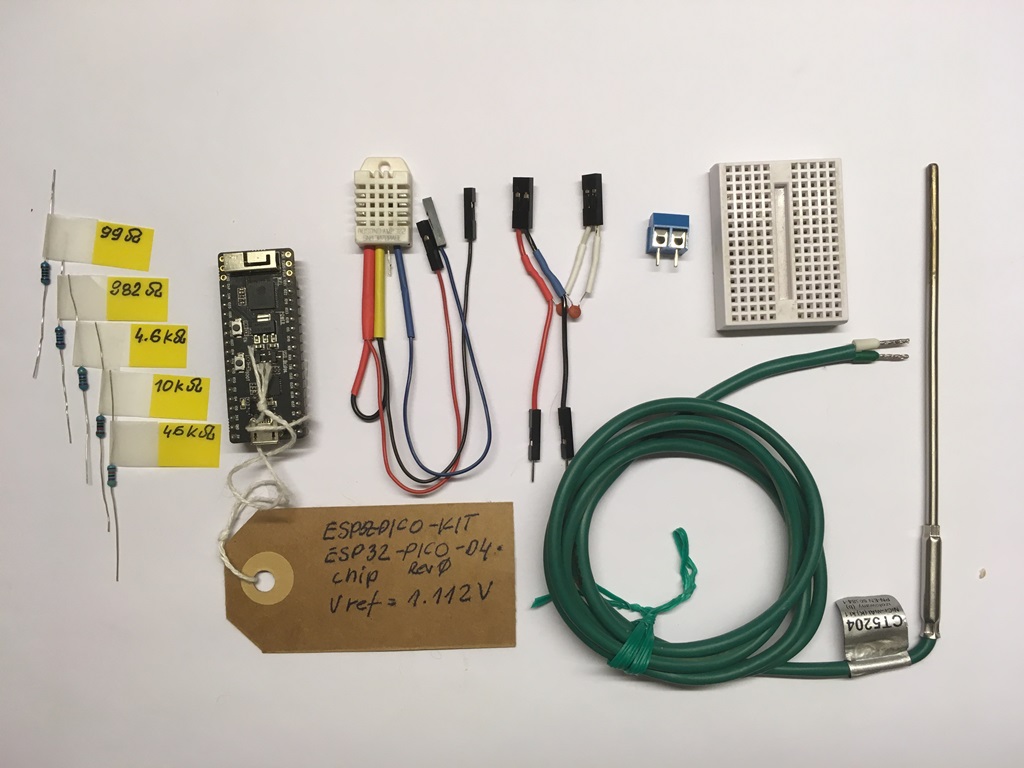 99Ω
982Ω
4.6kΩ
10kΩ
46kΩ
ESP32-PICO-KIT
ESP32-PICO-D4.
chip Rev0
Vref = 1.112V
CT5204